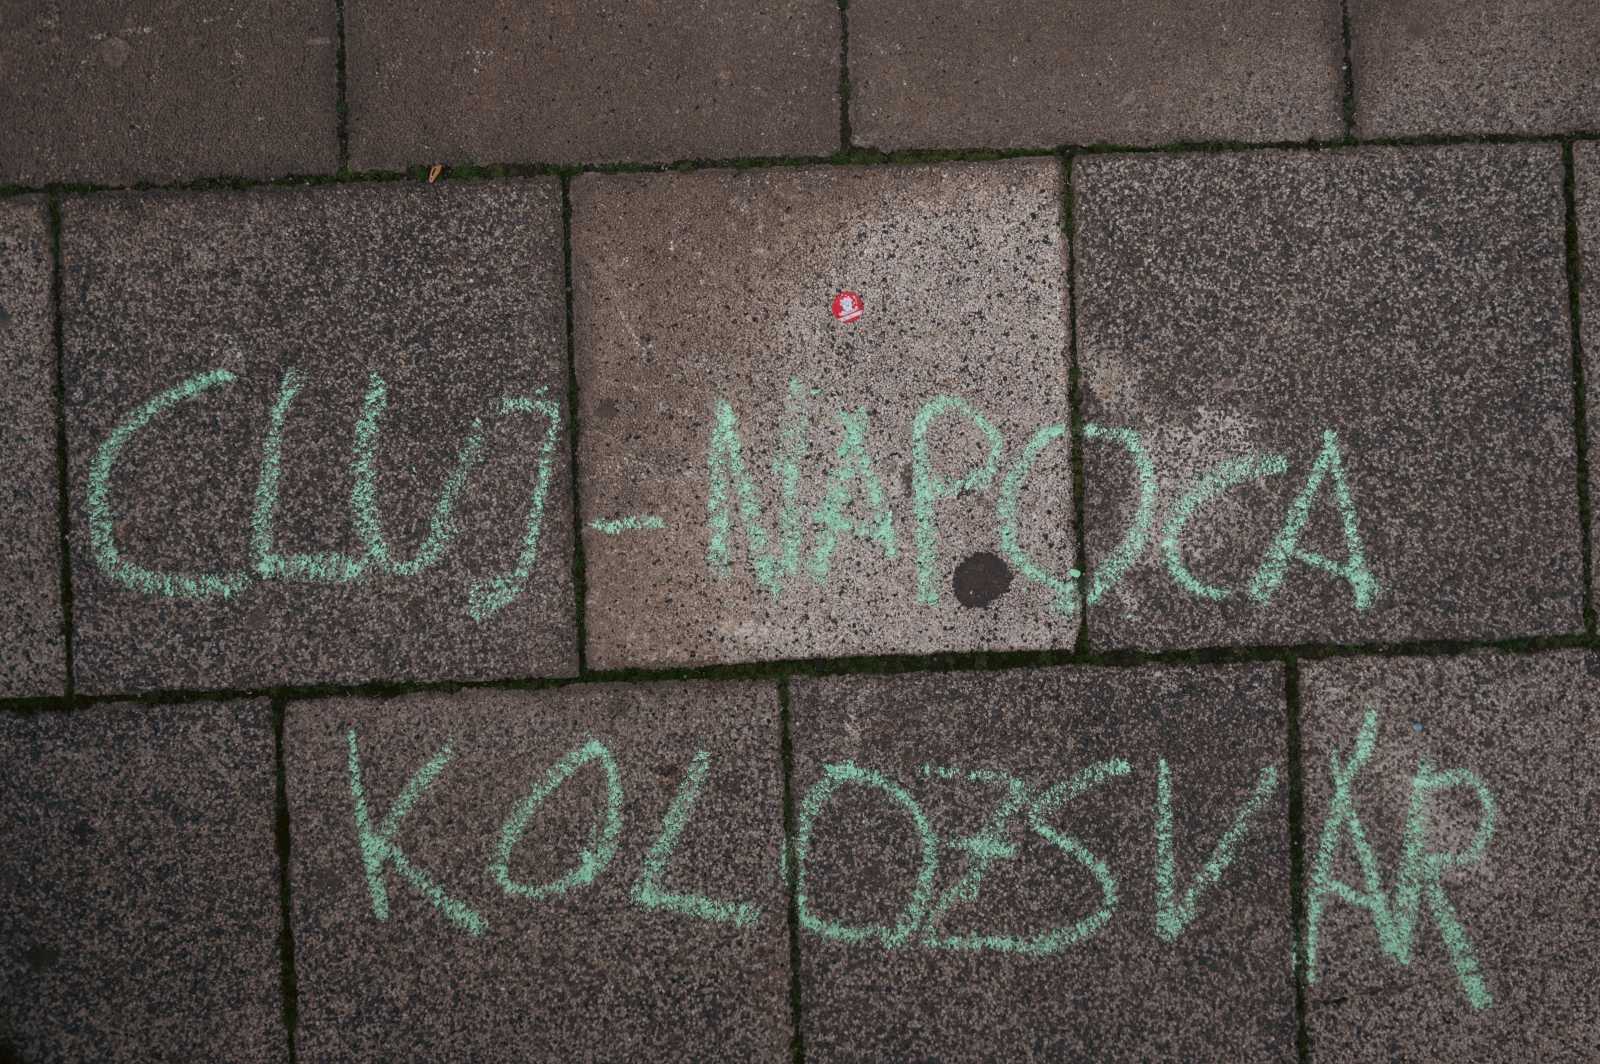 CLUJ-NAPOCA
KOLOZSVÁR